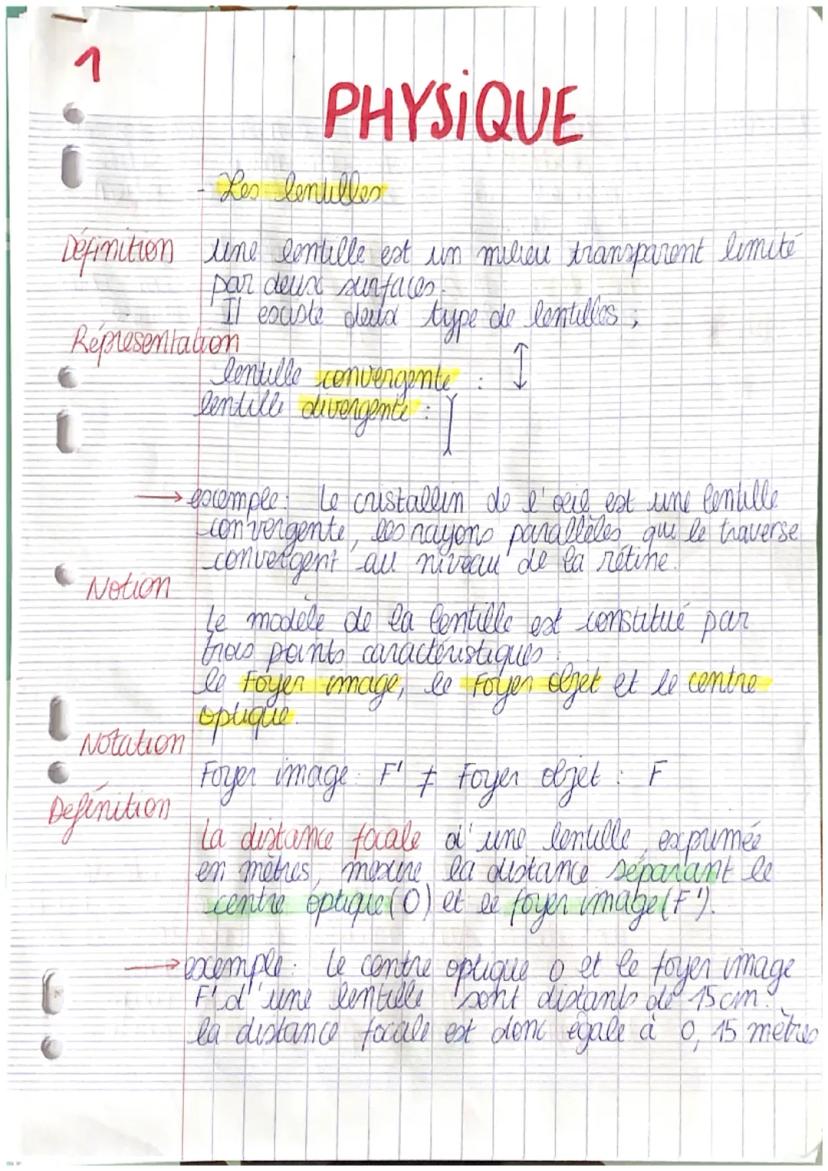 1
PHYSIQUE
- Les lentilles
Définition une lentille est un milieu transparent limité
par deux surfaces.
Il existe deux type de lentilles ;
Répresentation
lentille convergente :
lentille divergente :
→ exemple : Le cristallin de l'oeil est une lentille
convergente, les rayons parallèles qui le traverse
convergent au niveau de la rétine.
Notion
Le modèle de la lentille est constitué par
trois points caractéristiques :
le Foyer image, le Foyer objet et le centre
optique.
Notation
Foyer image : F' ≠ Foyer objet : F
Definition
La distance focale d'une lentille, exprimée
en mètres, mesure la distance séparant le
centre optique (O) et le foyer image (F').
→ exemple : Le centre optique O et le foyer image
F' d'une lentille sont distants de 15 cm.
la distance focale est donc égale à 0,15 mètres